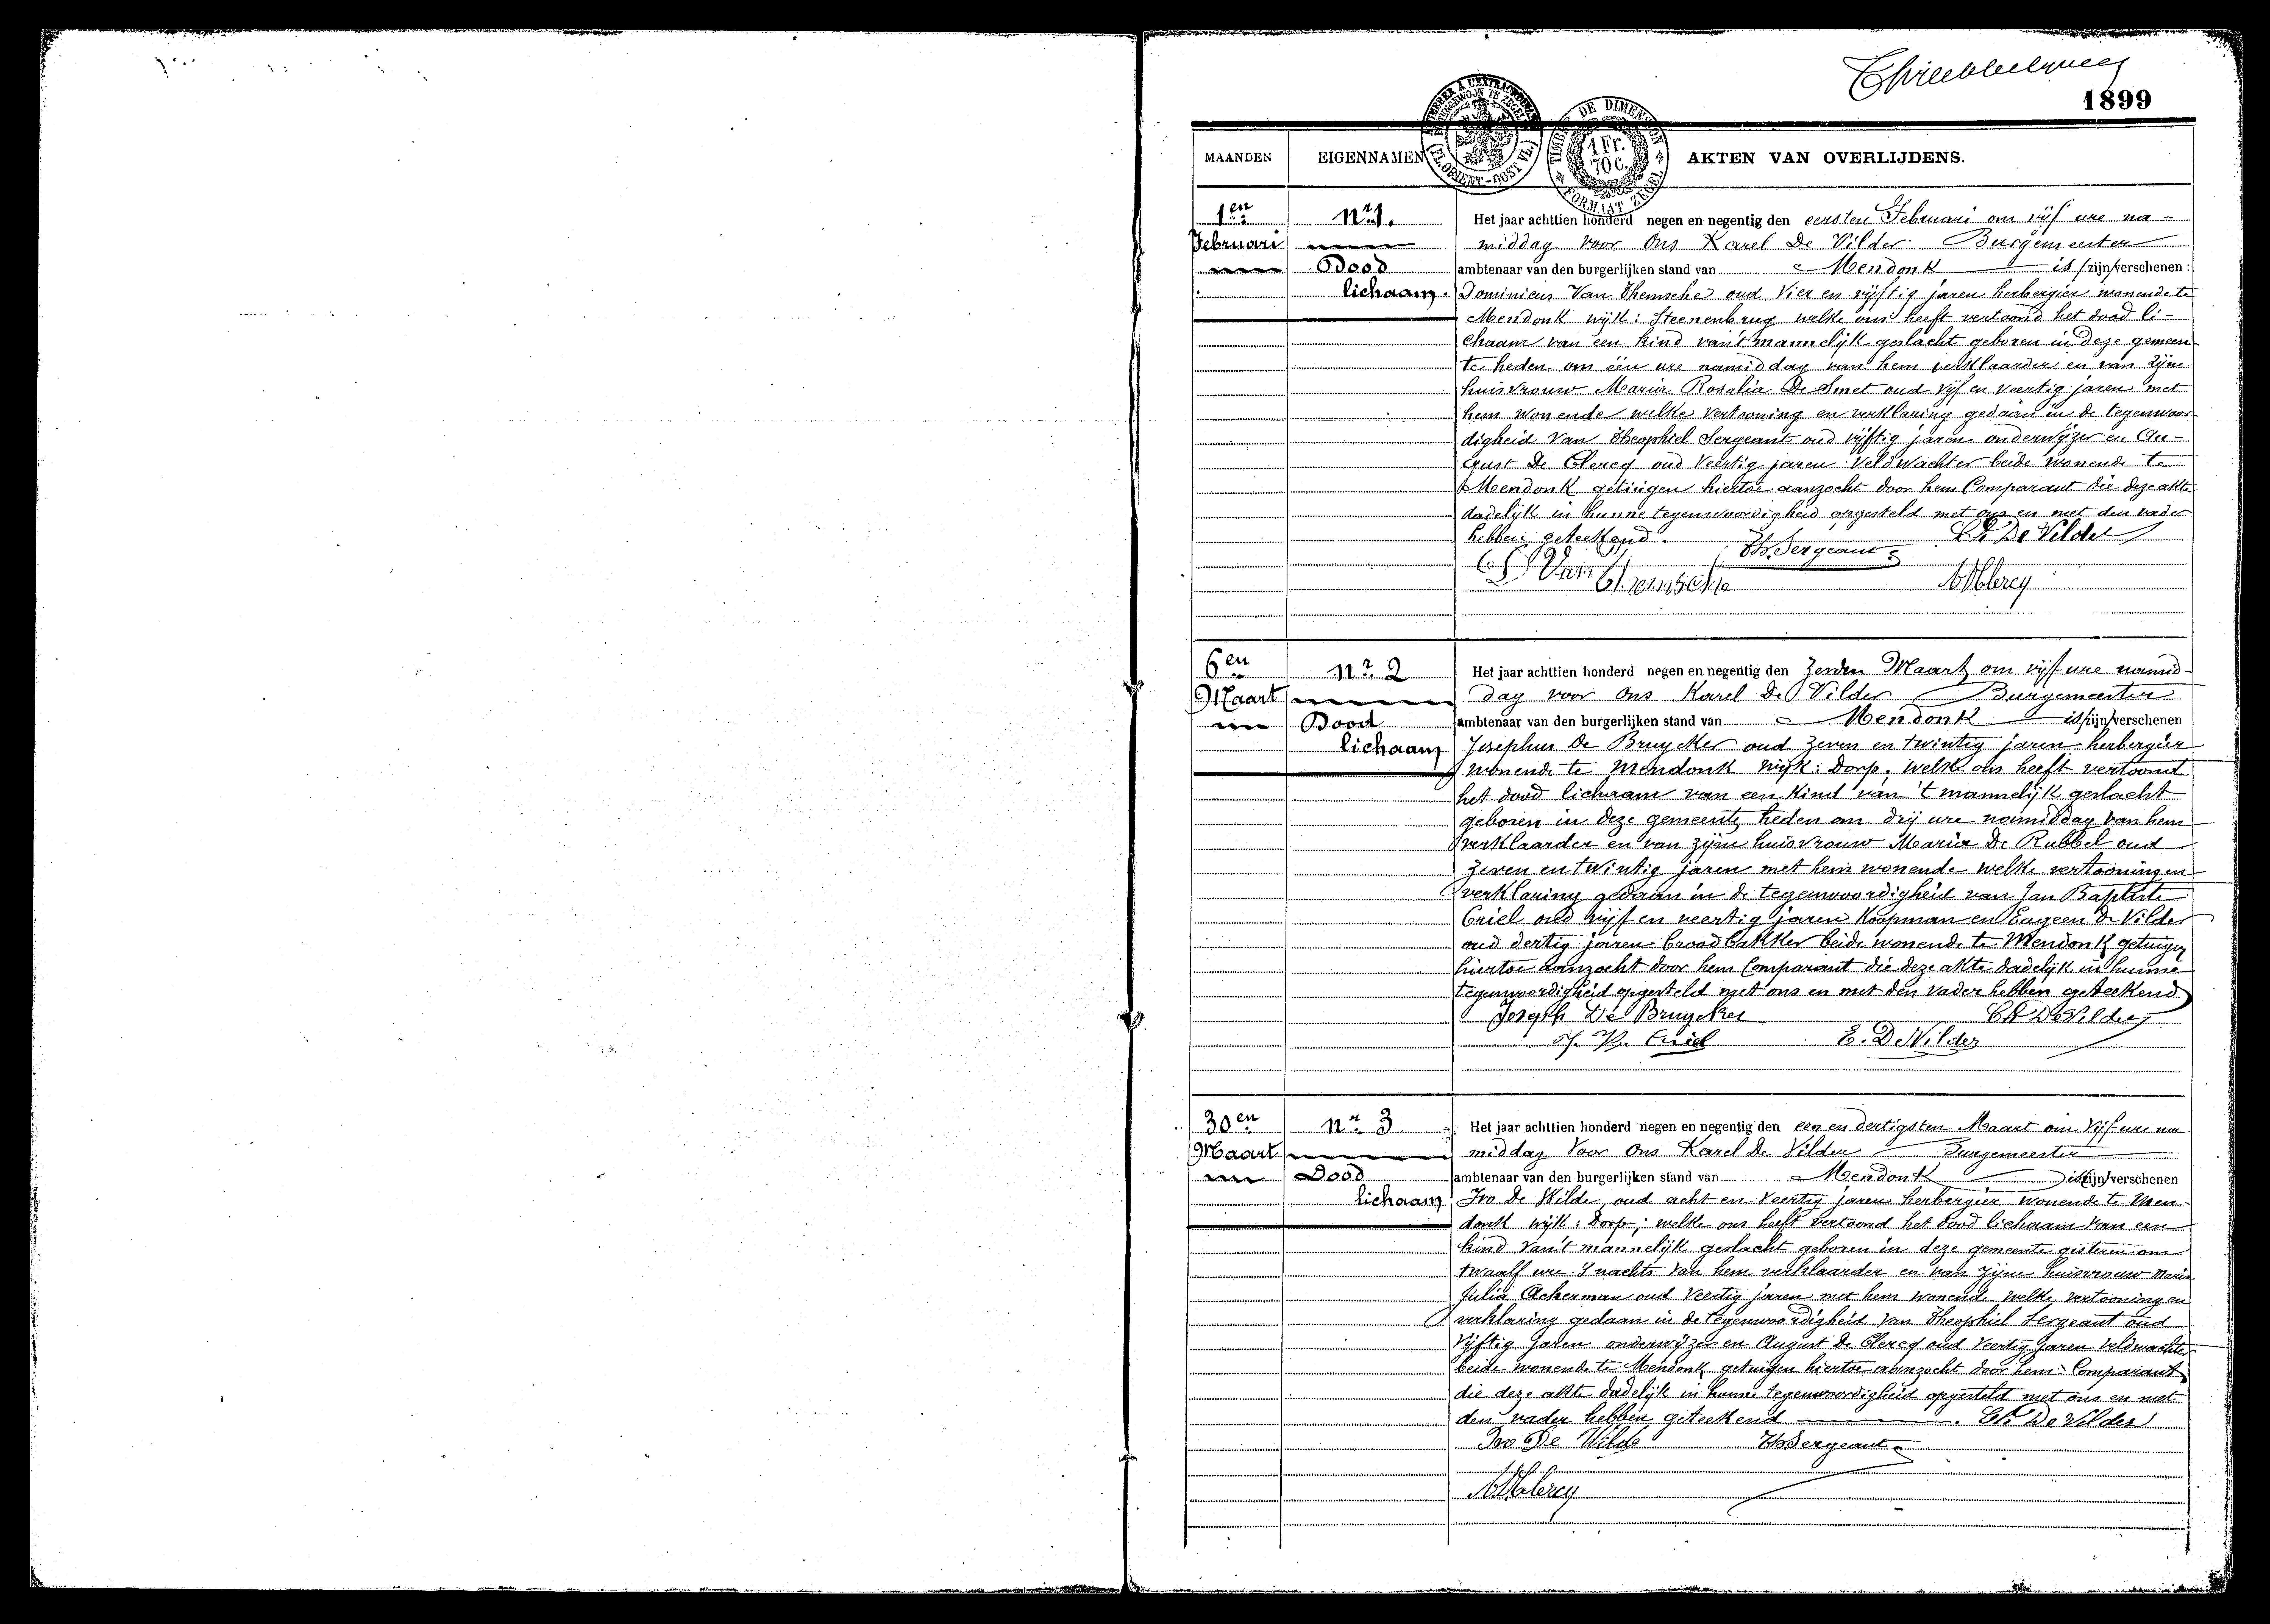 1899
A TIMBRER A L'EXTRAORDINAIRE
BUITENGEWOON TE ZEGELEN
(FL. ORIENT-OOST VL.)
TIMBRE DE DIMENSION
1 Fr.
70 C.
FORMAAT ZEGEL
MAANDEN EIGENNAMEN AKTEN VAN OVERLIJDENS.
1en Februari
nr 1.
Dood
lichaam.
Het jaar achttien honderd negen en negentig den eersten Februari om vijf ure na-
middag voor Ons Karel De Vilder Burgemeester
ambtenaar van den burgerlijken stand van Mendonk is /zijn/verschenen:
Dominicus Van Themsche oud Vier en vijftig jaren herbergier wonende te
Mendonk wijk: Steenenbrug welke ons heeft vertoond het dood li-
chaam van een kind van 't mannelijk geslacht geboren in deze gemeen-
te heden om één ure namiddag van hem verklaarder en van zijne
huisvrouw Maria Rosalia De Smet oud vijf en veertig jaren met
hem wonende welke vertooning en verklaring gedaan in de tegenwoor-
digheid Van Theophiel Sergeant oud vijftig jaren onderwijzer en Au-
gust De Clercq oud Veertig jaren Veldwachter beide wonende te
Mendonk getuigen hiertoe aanzocht door hem Comparant die deze akte
dadelijk in hunne tegenwoordigheid opgesteld met ons en met den vader
hebben geteekend. Th. Sergeant Ch De Vilder
D Van Themsche A. D Clercq
6en Maart
nr 2
Dood
lichaam
Het jaar achttien honderd negen en negentig den Zesden Maart om vijf ure namid-
dag voor Ons Karel De Vilder Burgemeester
ambtenaar van den burgerlijken stand van Mendonk is/zijn/verschenen
Josephus De Bruycker oud Zeven en twintig jaren herbergier
wonende te Mendonk wijk: Dorp. welke ons heeft vertoond
het dood lichaam van een Kind van 't mannelijk geslacht
geboren in deze gemeente heden om drij ure namiddag van hem
verklaarder en van zijne huisvrouw Maria De Rubbel oud
zeven en twintig jaren met hem wonende welke vertooning en
verklaring gedaan in de tegenwoordigheid van Jan Baptiste
Criel oud vijf en veertig jaren Koopman en Eugeen De Vilder
oud dertig jaren broodbakker beide wonende te Mendonk getuigen
hiertoe aanzocht door hem Comparant die deze akte dadelijk in hunne
tegenwoordigheid opgesteld met ons en met den vader hebben geteekend
Joseph De Bruycker Ch De Vilder
J. B. Criel E. De Vilder
30en Maart
nr 3
Dood
lichaam
Het jaar achttien honderd negen en negentig den een en dertigsten Maart om Vijf ure na
middag Voor Ons Karel De Vilder Burgemeester
ambtenaar van den burgerlijken stand van Mendonk is/zijn/verschenen
Ivo De Wilde oud acht en Veertig jaren herbergier wonende te Men-
donk wijk: Dorp; welke ons heeft vertoond het dood lichaam van een
kind van 't mannelijk geslacht geboren in deze gemeente gisteren om
twaalf ure 's nachts Van hem verklaarder en van zijne huisvrouw Maria
Julia Ackerman oud Veertig jaren met hem wonende welke vertooning en
verklaring gedaan in de tegenwoordigheid Van Theophiel Sergeant oud
Vijftig Jaren onderwijzer en August De Clercq oud Veertig Jaren Veldwachter
beide wonende te Mendonk getuigen hiertoe aanzocht door hem Comparant
die deze akte dadelijk in hunne tegenwoordigheid opgesteld met ons en met
den vader hebben geteekend. Ch De Vilder
Ivo De Wilde Th Sergeant
A. D Clercq